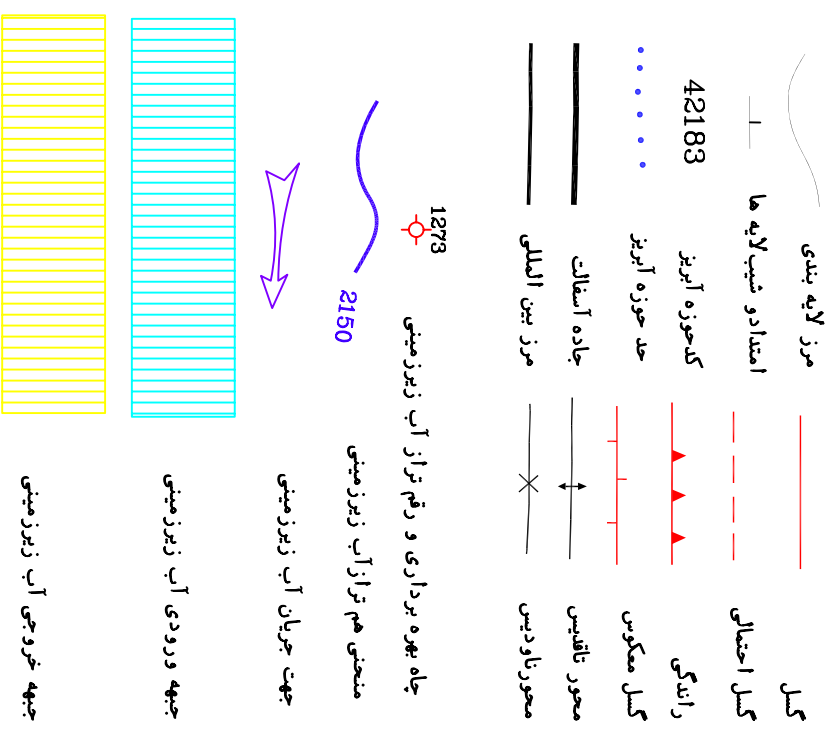 مرز لایه بندی
امتداد و شیب لایه ها
42183
کدحوزه آبریز
حد حوزه آبریز
جاده آسفالت
مرز بین المللی
گسل
گسل احتمالی
راندگی
گسل معکوس
محور تاقدیس
محورناودیس
1273
چاه بهره برداری و رقم تراز آب زیرزمینی
2150
منحنی هم ترازآب زیرزمینی
جهت جریان آب زیرزمینی
جبهه ورودی آب زیرزمینی
جبهه خروجی آب زیرزمینی